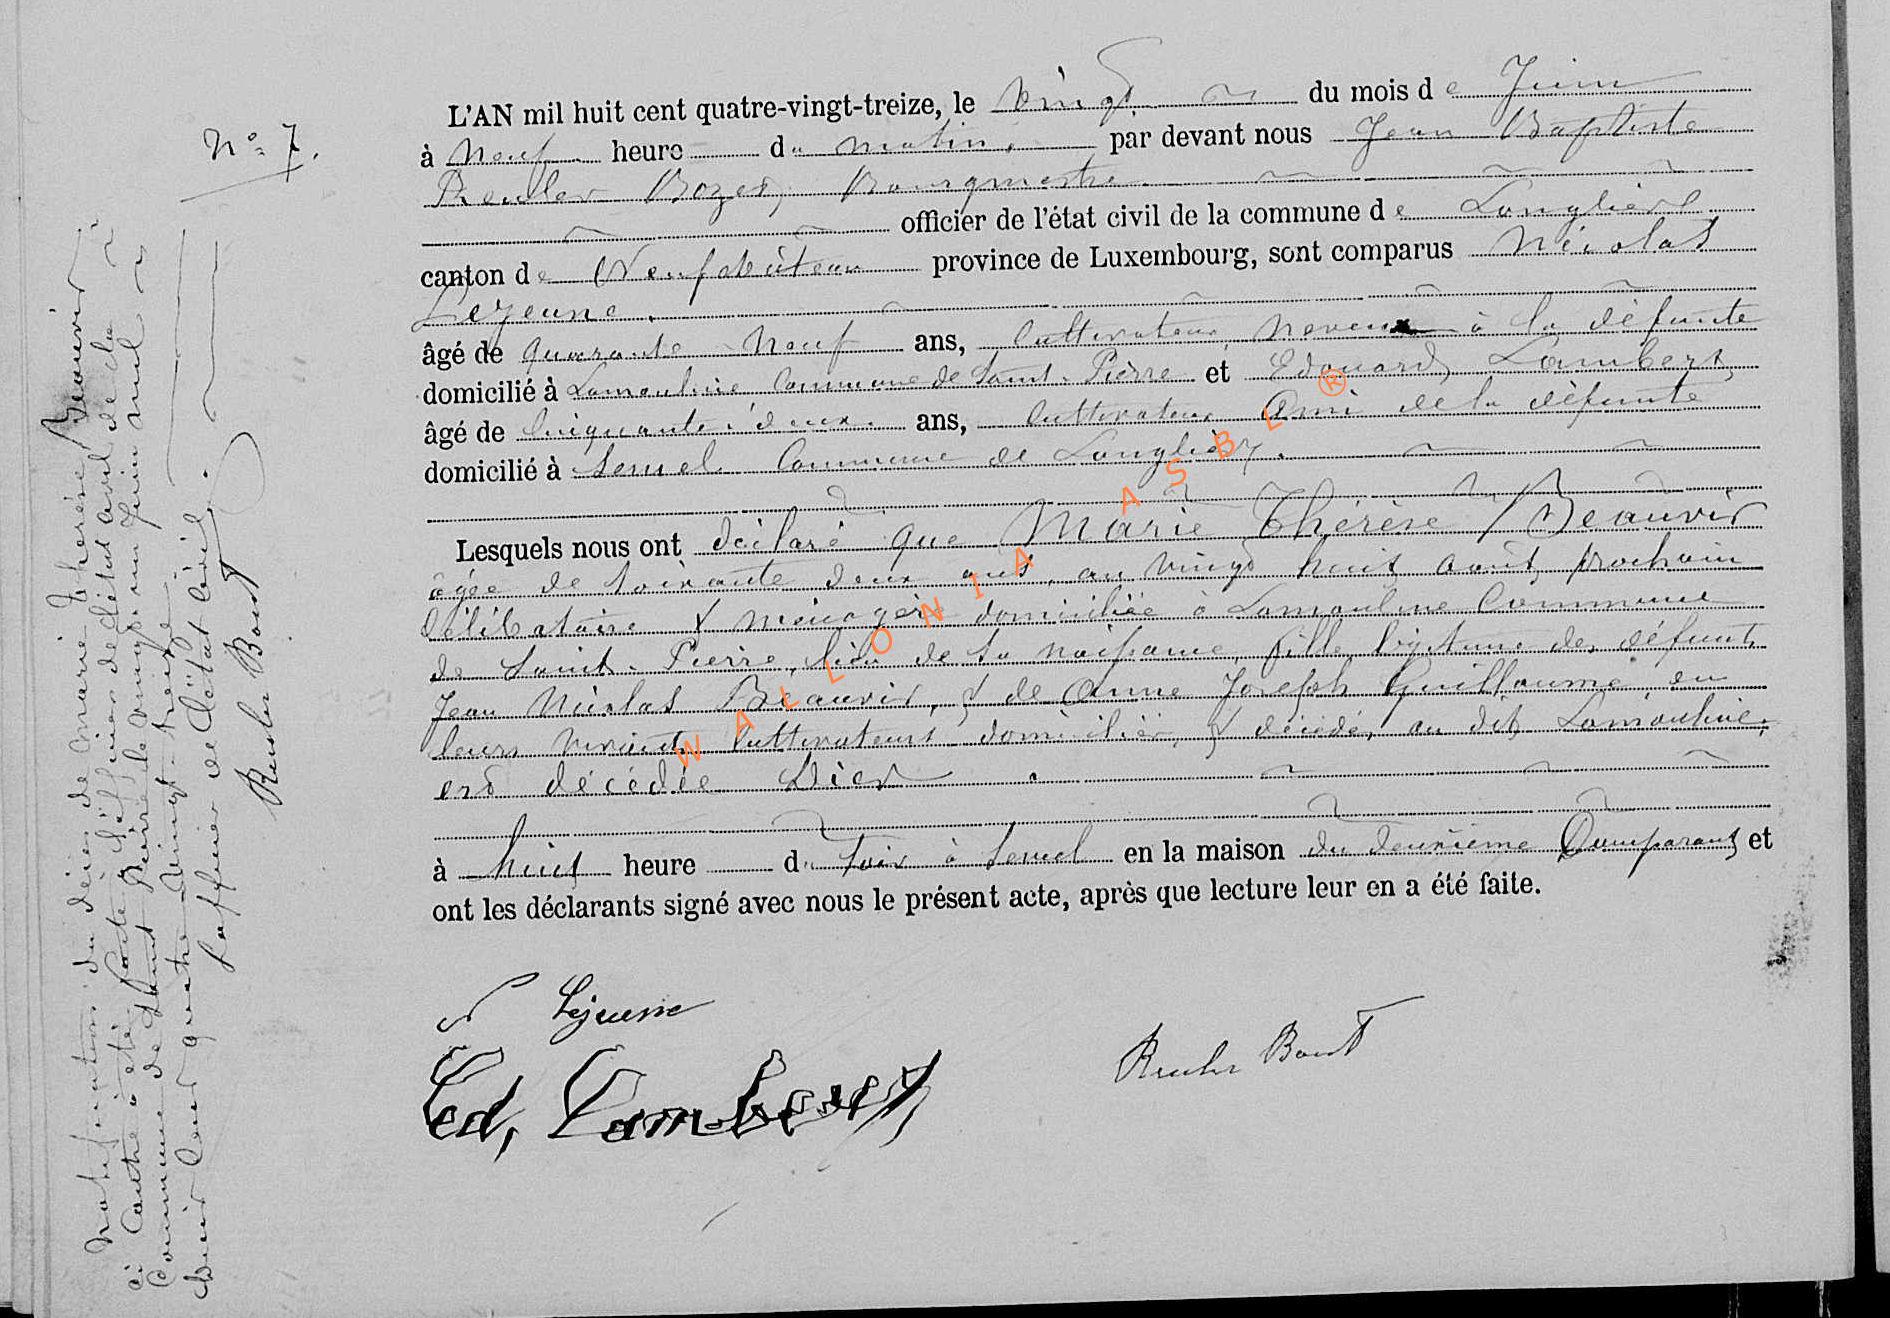 N° 7.
L'AN mil huit cent quatre-vingt-treize, le vingt du mois de Juin
à Neuf heure du matin, par devant nous Jean Baptiste
Reuler Bozet, Bourgmestre
officier de l'état civil de la commune de Longlier
canton de Neufchâteau province de Luxembourg, sont comparus Nicolas
Lejeune.
âgé de quarante Neuf ans, Cultivateur, neveu à la défunte
domicilié à Lamouline Commune de Saint-Pierre et Edouard Lambert,
âgé de Cinquante deux ans, Cultivateur Ami de la défunte
domicilié à Semel Commune de Longlier.
Lesquels nous ont déclaré que Marie Thérèse Beauvir
âgée de soixante deux ans, au vingt huit Août prochain
Célibataire & ménagère domiciliée à Lamouline Commune
de Saint-Pierre, lieu de sa naissance, fille légitime des défunts
Jean Nicolas Beauvir, & de Anne Joseph Guillaume, en
leurs vivants Cultivateurs domiciliés, & décédés au dit Lamouline,
est décédée hier
à huit heure du soir à Semel en la maison du deuxième Comparant et
ont les déclarants signé avec nous le présent acte, après que lecture leur en a été faite.
N Lejeune
Ed, Lambert
Reuler
Notification du décès de Marie Thérèse Beauvir
ci Contre a été faite à l'officier de l'état civil de la
Commune de Saint Pierre le vingt un Juin mil
huit Cent quatre-Vingt-treize
L'officier de l'état Civil.
Reuler
WALLONIA ASBL ®